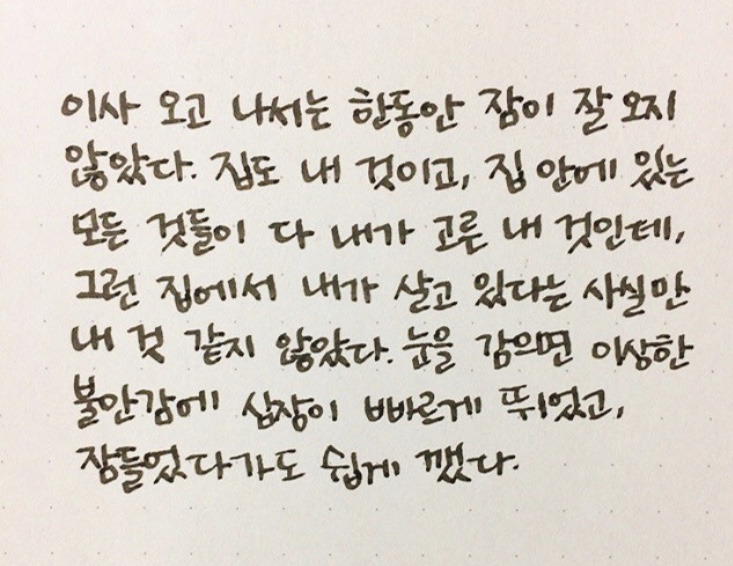 이사 오고 나서는 한동안 잠이 잘 오지
않았다. 집도 내 것이고, 집 안에 있는
모든 것들이 다 내가 고른 내 것인데,
그런 집에서 내가 살고 있다는 사실만
내 것 같지 않았다. 눈을 감으면 이상한
불안감에 심장이 빠르게 뛰었고,
잠들었다가도 쉽게 깼다.